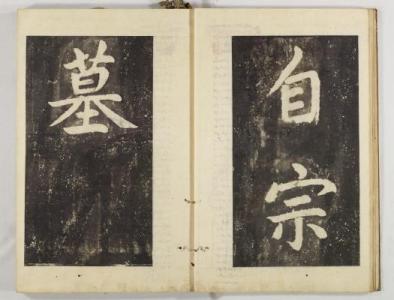 自宗
墓